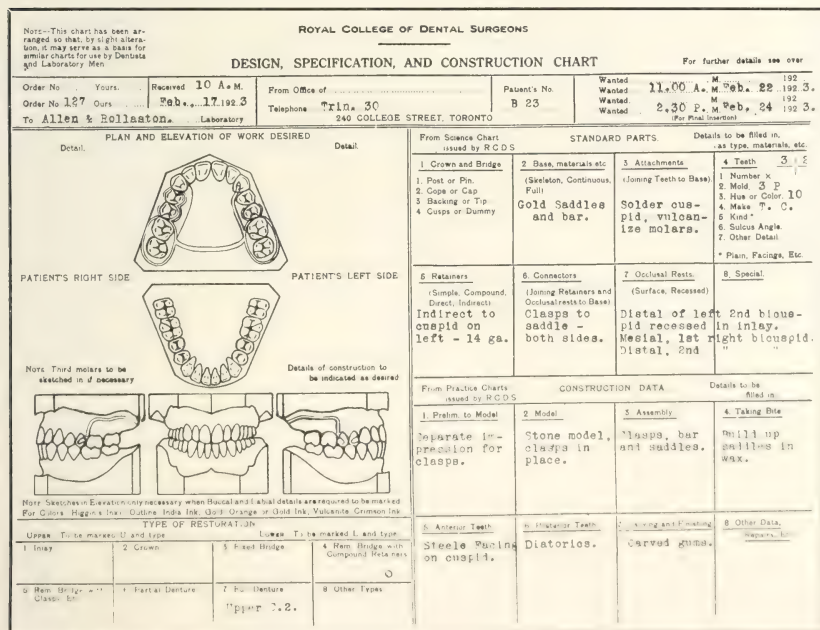 Note--This chart has been ar-
ranged so that, by slight altera-
tion, it may serve as a basis for
similar charts for use by Dentists
and Laboratory Men
ROYAL COLLEGE OF DENTAL SURGEONS
DESIGN, SPECIFICATION, AND CONSTRUCTION CHART
For further details see over
Order No Yours.
Order No 127 Ours
To Allen & Rollaston. Laboratory
Received 10 A.M.
Feb., 17 192 3
From Office of
Telephone Trin. 30
240 COLLEGE STREET, TORONTO
Patient's No.
B 23
Wanted M. 192
Wanted 11.00 A. M. Feb. 22 192 3.
Wanted. M. 192
Wanted 2.30 P. M. Feb. 24 192 3.
(For Final Insertion)
PLAN AND ELEVATION OF WORK DESIRED
Detail. Detail.
PATIENT'S RIGHT SIDE PATIENT'S LEFT SIDE
Note Third molars to be
sketched in if necessary
Details of construction to
be indicated as desired
Note Sketches in Elevation only necessary when Buccal and Labial details are required to be marked
For Colors, Higgins Ink: Outline India Ink, Gold Orange or Gold Ink, Vulcanite Crimson Ink
TYPE OF RESTORATION
UPPER To be marked U and type LOWER To be marked L and type
1 Inlay
2 Crown
3 Fixed Bridge
4 Rem. Bridge with
Compound Retainers
O
5 Rem. Bridge
6 Partial Denture
7 Denture
Upper
8 Other Types
From Science Chart
issued by R C D S
STANDARD PARTS.
Details to be filled in,
as type, materials, etc.
1 Crown and Bridge
1. Post or Pin.
2. Cope or Cap
3 Backing or Tip
4 Cusps or Dummy
2 Base, materials etc
(Skeleton, Continuous,
Full)
Gold Saddles
and bar.
3 Attachments
(Joining Teeth to Base).
Solder cus-
pid, vulcan-
ize molars.
4 Teeth 3 | 2
1 Number x
2. Mold. 3 P
3. Hue or Color. 10
4. Make T. C.
5 Kind *
6. Sulcus Angle.
7. Other Detail
* Plain, Facings, Etc.
5 Retainers
(Simple, Compound,
Direct, Indirect)
Indirect to
cuspid on
left - 14 ga.
6. Connectors
(Joining Retainers and
Occlusal rests to Base)
Clasps to
saddle -
both sides.
7 Occlusal Rests.
(Surface, Recessed)
8. Special.
Distal of left 2nd bicus-
pid recessed in inlay.
Mesial, 1st right bicuspid.
Distal, 2nd " "
From Practice Charts
issued by R C D S
CONSTRUCTION DATA
Details to be
filled in
1. Prelim. to Model
Separate im-
pression for
clasps.
2 Model
Stone model,
clasps in
place.
3 Assembly
Clasps, bar
and saddles.
4. Taking Bite
Build up
saddles in
wax.
5 Anterior Teeth
Steele Facing
on cuspid.
6 Posterior Teeth
Diatorics.
and Finishing
Carved gums.
8 Other Data,
Repairs,